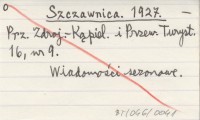 Szczawnica. 1927. —
Prz. Zdroj.-Kąpiel. i Przew. Turyst.
16, nr 9.
Wiadomości sezonowe.